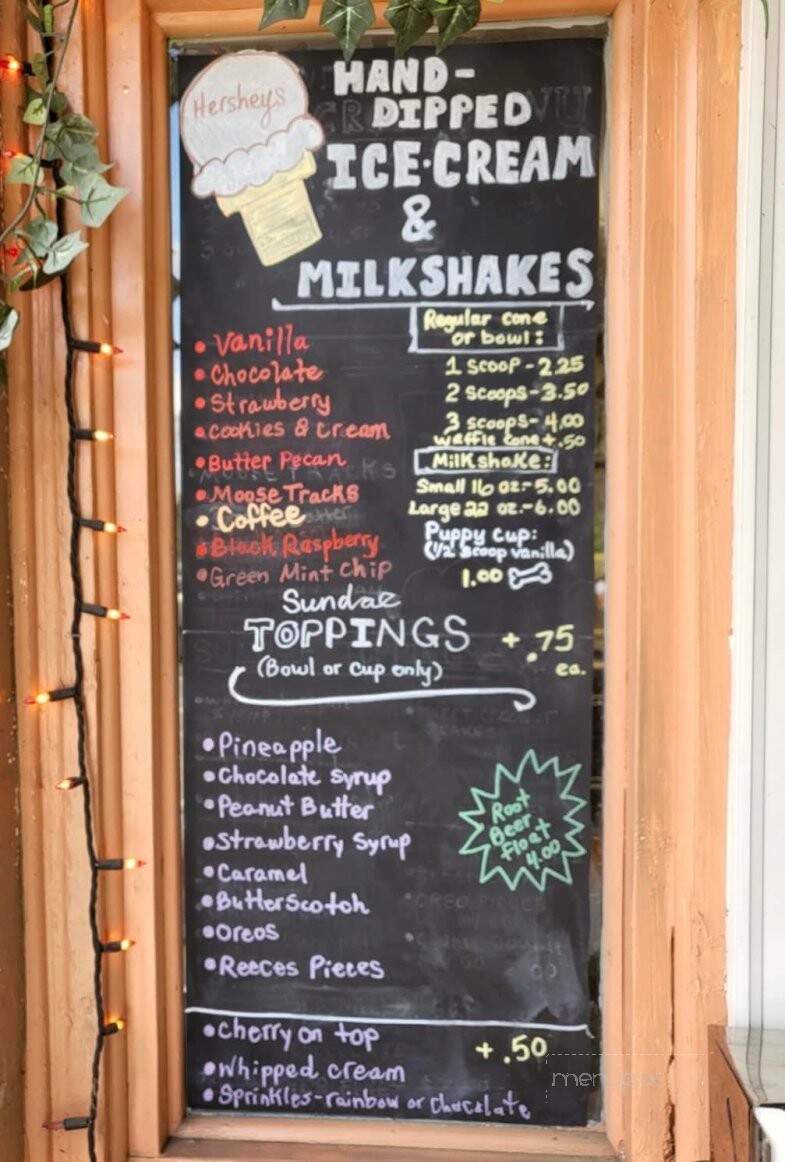 Hersheys
HAND-
DIPPED
ICE·CREAM
&
MILKSHAKES
• Vanilla
• Chocolate
• Strawberry
• cookies & cream
• Butter Pecan
• Moose Tracks
• Coffee
• Black Raspberry
• Green Mint Chip
Regular cone
or bowl:
1 scoop - 2.25
2 scoops - 3.50
3 scoops - 4.00
waffle cone + .50
Milkshake:
Small 16 oz. - 5.00
Large 22 oz. - 6.00
Puppy Cup:
(1/2 scoop vanilla)
1.00
Sundae
TOPPINGS + .75
ea.
(Bowl or Cup only)
• Pineapple
• Chocolate syrup
• Peanut Butter
• Strawberry Syrup
• Caramel
• Butterscotch
• Oreos
• Reeces Pieces
Root
Beer
Float
4.00
• Cherry on top
• Whipped cream
• Sprinkles - rainbow or chocolate
+ .50